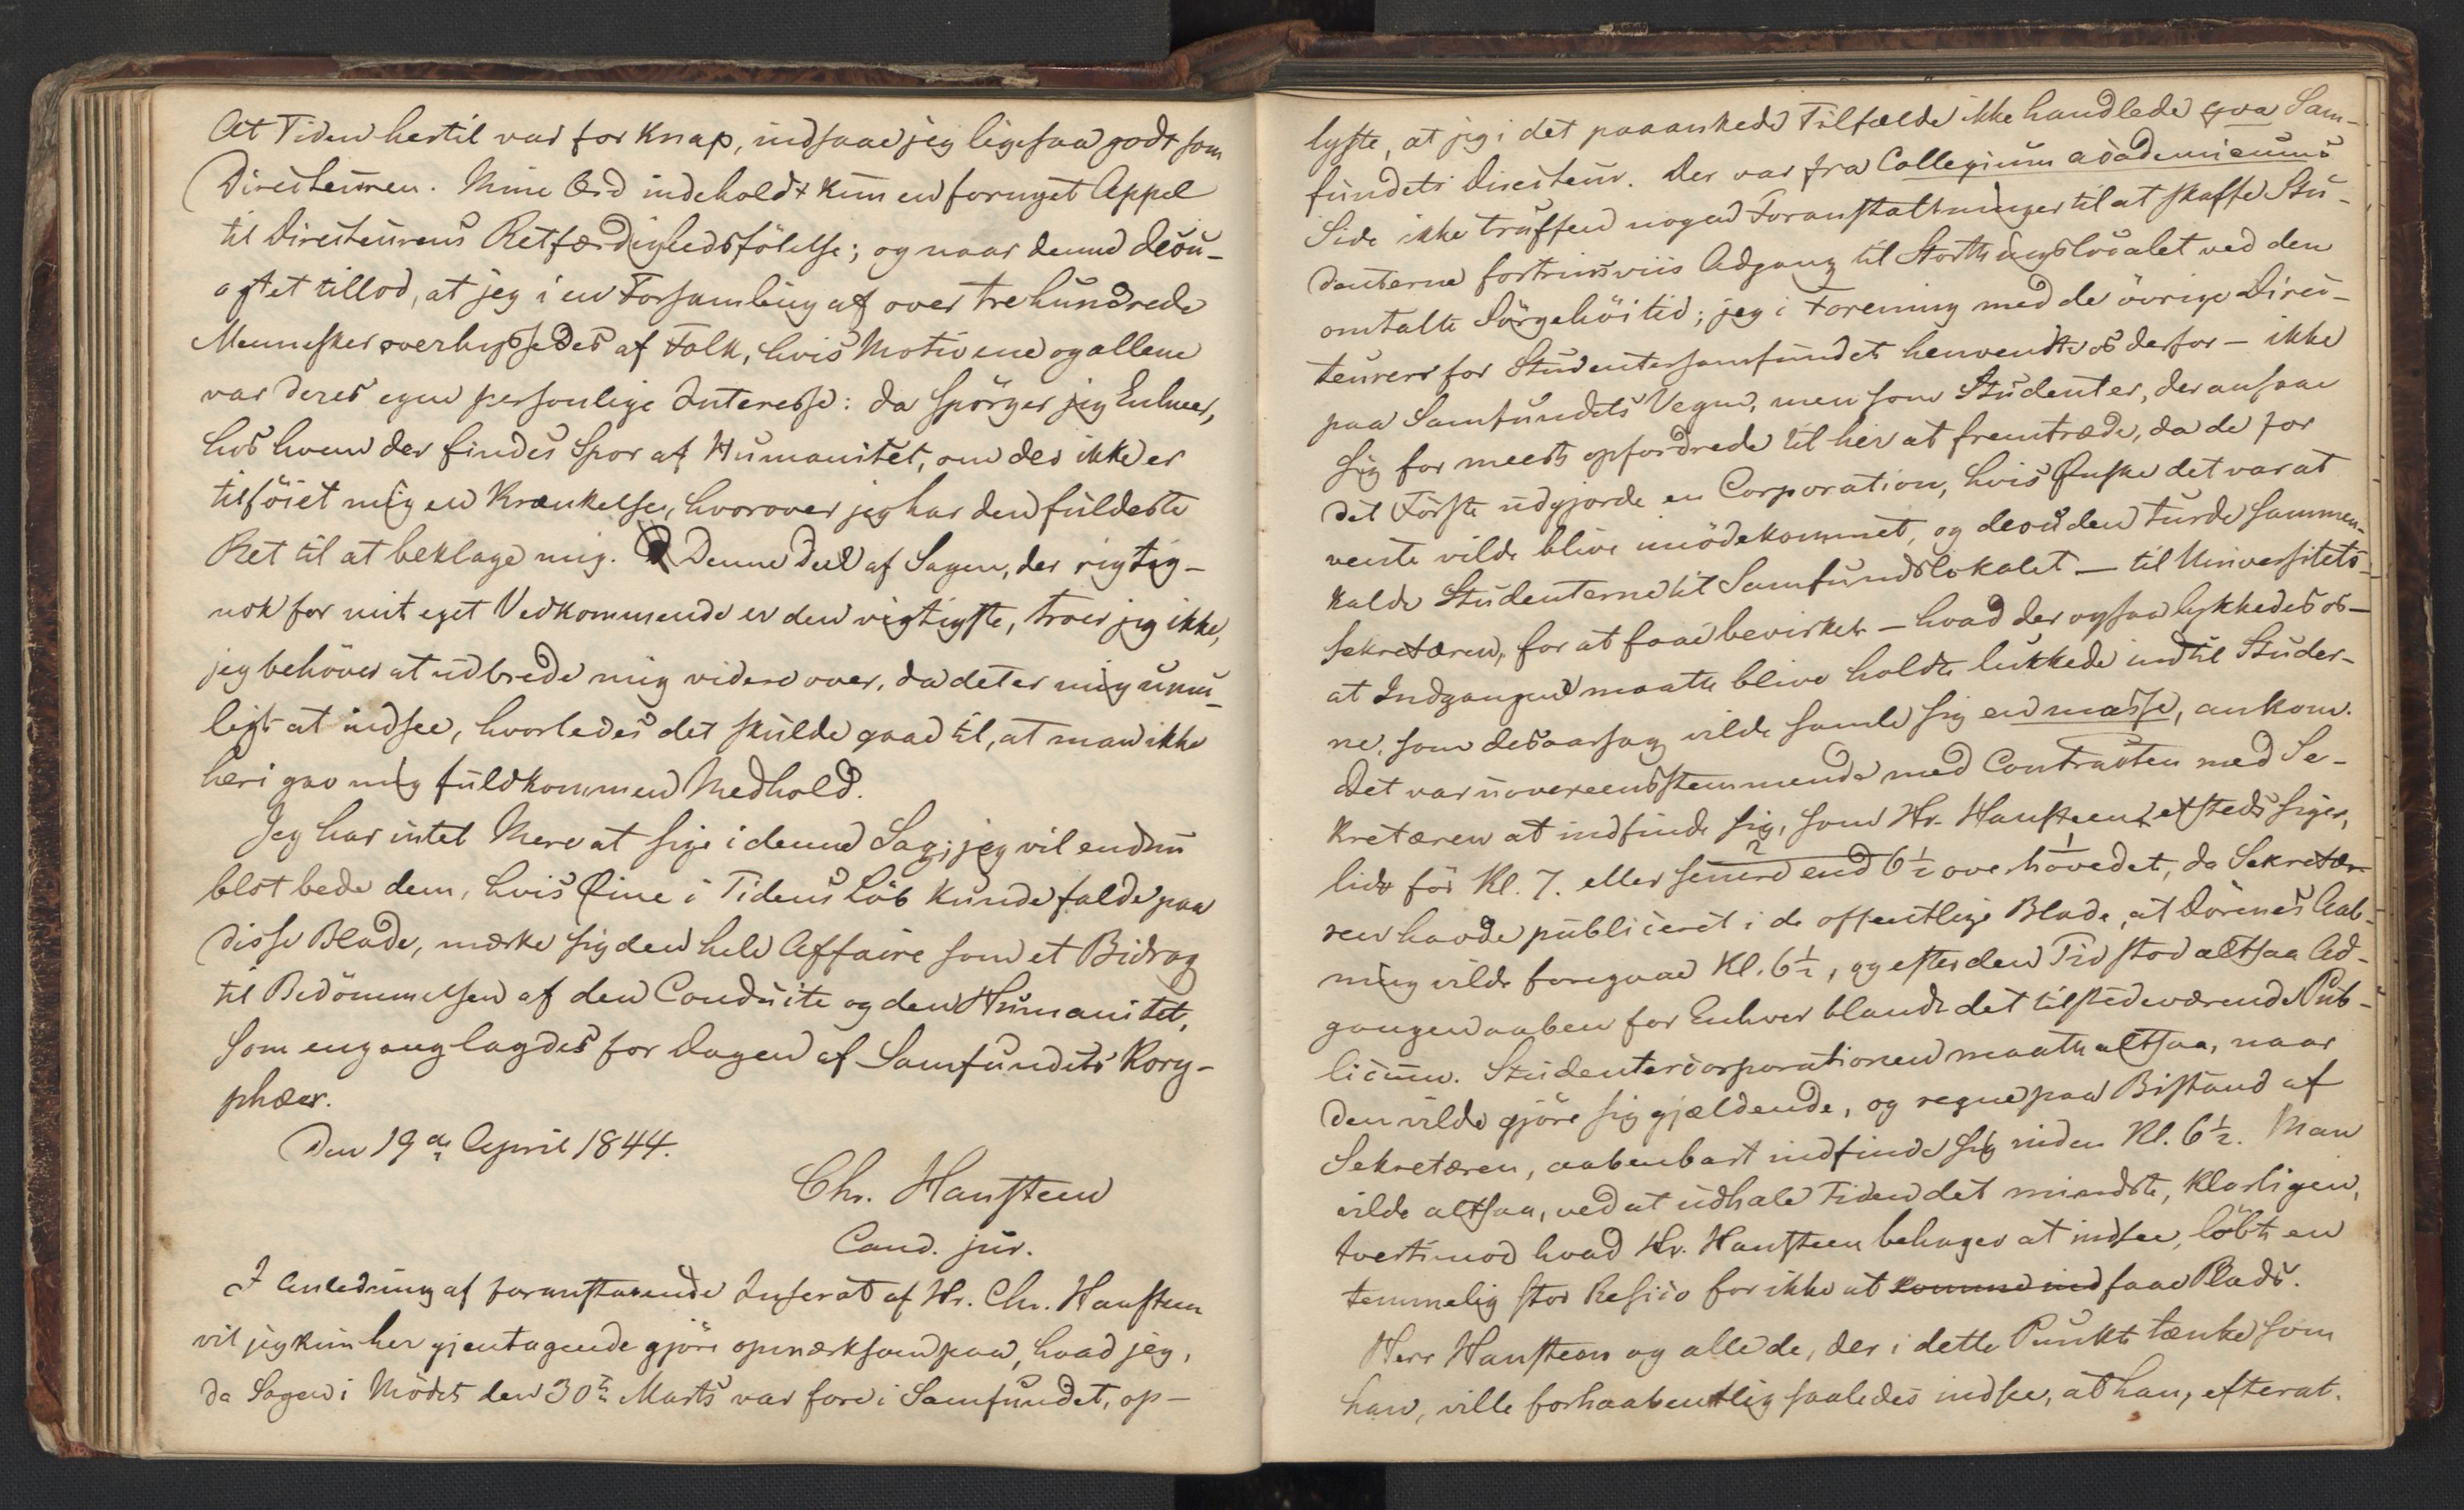 At Tiden hertil var for Knap, indsaae jeg ligesaa godt som
Directeuren. Mine Ord indeholdt kun en fornyet Appel
til Directeurens Retfærdighedsfölelse; og naar denne desu-
agtet tillod, at jeg i en Forsamling af over tre hundrede
Mennesker overhyssedes af Folk, hvis Motiv ene og allene
var deres egne personlige Interesse: da spörger jeg Enhver,
hos hvem der findes Spor af Humanitet, om der ikke er
tilföiet mig en Krænkelse, hvorover jeg har den fuldeste
Ret til at beklage mig. Denne Deel af Sagen, der rigtig-
nok for mit eget Vedkommende er den vigtigste, troer jeg ikke,
jeg behöver at udbrede mig videre over, da det er mig umu-
ligt at indsee, hvorledes det skulde gaae til, at man ikke
heri gav mig fuldkommen Medhold.
Jeg har intet Mere at sige i denne Sag; jeg vil endnu
blot bede dem, hvis Öine i Tidens Löb kunde falde paa
disse Blade, mærke sig den hele Affaire som et Bidrag
til Bedömmelsen af den Conduite og den Humanitet,
som engang lagdes for Dagen af Samfundets Kory-
phæer.
Den 19de April 1844.
Chr. Hansteen
Cand. jur.
I Anledning af foranstaaende Inserat af Hr. Chr. Hansteen
vil jeg kun her gjentagende gjöre opmærksom paa, hvad jeg,
da Sagen i Mödet den 30te Marts var fore i Samfundet, op-
lyste, at jeg i det paaankede Tilfælde ikke handlede qva Sam-
fundets Directeur. Der var fra Collegium academicums
Side ikke truffen nogen Foranstaltninger til at skaffe Stu-
denterne fortrinsviis Adgang til Storthingslocalet ved den
omtalte Sörgehöitid; jeg i Forening med de övrige Direc-
teurer for Studentersamfundet henvendte os derfor – ikke
paa Samfundets Vegne, men som Studenter, der ansaae
sig for meest opfordrede til her at fremtræde, da de for
det Förste udgjorde en Corporation, hvis Önske det var at
vente vilde blive imödekommet, og desuden turde sammen-
kalde Studenterne til Samfundslokalet – til Universitets-
sekretæren, for at faae bevirket – hvad der ogsaa lykkedes os –
at Indgangene maatte blive holdte lukkede indtil Studer-
ne, som desaarsag vilde samle sig en masse, ankom.
Det var uovereensstemmende med Contracten med Se-
kretæren at indfinde sig, som Hr. Hansteen etsteds siger,
lidt för Kl. 7. eller senere end 6½ overhovedet, da Sekretæ-
ren havde publiceret i de offentlige Blade, at Dörenes Aab-
ning vilde foregaae Kl. 6½, og efter den Tid stod altsaa Ad-
gangen aaben for Enhver blandt det tilstedeværende Pub-
licum. Studentercorporationen maatte altsaa, naar
den vilde gjöre sig gjældende, og regne paa Bistand af
Sekretæren, aabenbart indfinde sig inden Kl. 6½. Man
vilde altsaa, ved at udhale Tiden det mindste, klarligen,
tvertimod hvad Hr. Hansteen behager at indsee, löbt en
temmelig stor Resico for ikke at komme ind faae Plads.
Herr Hansteen og alle de, der i dette Punkt tænke som
han, ville forhaabentlig saaledes indsee, at han, efterat